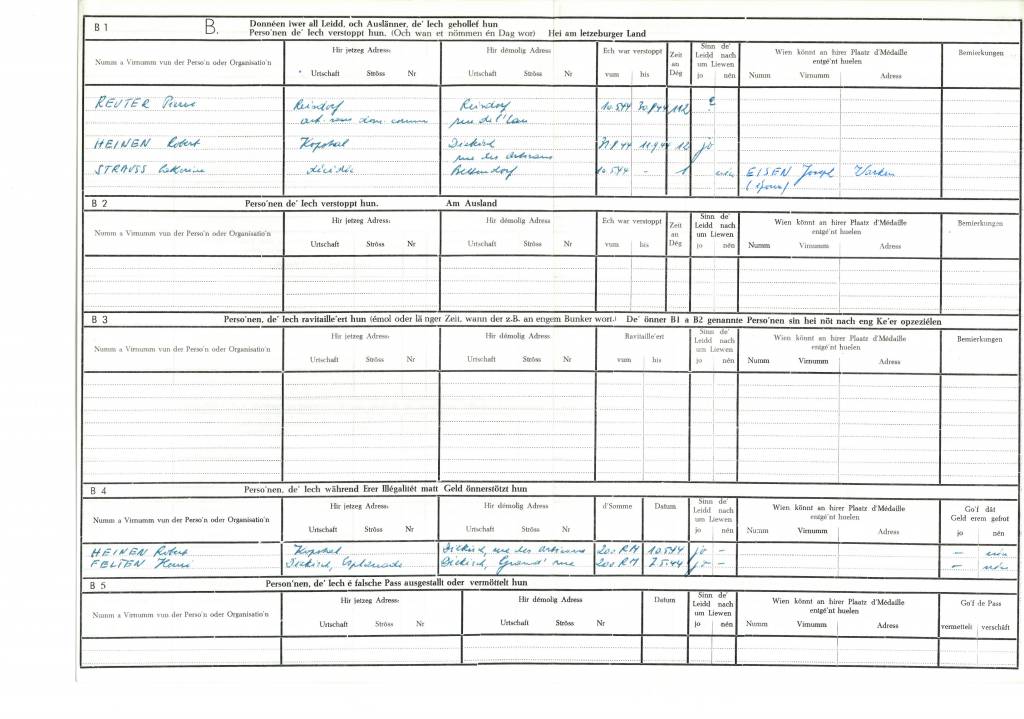 B 1 B. Donnéen iwer all Leidd, och Auslänner, de' Iech gehollef hun
Perso'nen de' Iech verstoppt hun. (Och wan et nömmen én Dag wor) Hei am letzeburger Land
Numm a Virnumm vun der Perso'n oder Organisatio'n
Hir jetzeg Adress:
Urtschaft Ströss Nr
Hir démolig Adress
Urtschaft Ströss Nr
Ech war verstoppt
vum bis
Zeit
an
Dég
Sinn de'
Leidd nach
um Liewen
jo nén
Wien könnt an hirer Plaatz d'Médaille
entgé'nt huelen
Numm Virnumm Adress
Bemierkungen
REUTER Pierre Reisdorf Reisdorf 10.5.44 30.8.44 112 ?
rue de l'Eau
HEINEN Robert Kopstal Diekirch 31.8.44 11.9.44 12 jo
rue des artisans
STRAUSS décédée Bettendorf 10.5.44 - 1 nén EISEN Joseph Warken
B 2 Perso'nen de' Iech verstoppt hun. Am Ausland
Numm a Virnumm vun der Perso'n oder Organisatio'n
Hir jetzeg Adress:
Urtschaft Ströss Nr
Hir démolig Adress
Urtschaft Ströss Nr
Ech war verstoppt
vum bis
Zeit
an
Dég
Sinn de'
Leidd nach
um Liewen
jo nén
Wien könnt an hirer Plaatz d'Médaille
entgé'nt huelen
Numm Virnumm Adress
Bemierkungen
B 3 Perso'nen, de' Iech ravitaille'ert hun (émol oder länger Zeit, wann der z.B. an engem Bunker wort.) De' önner B1 a B2 genannte Perso'nen sin hei nöt nach eng Ke'er opzeziélen
Numm a Virnumm vun der Perso'n oder Organisatio'n
Hir jetzeg Adress:
Urtschaft Ströss Nr
Hir démolig Adress
Urtschaft Ströss Nr
Ravitaille'ert
vum bis
Sinn de'
Leidd nach
um Liewen
jo nén
Wien könnt an hirer Plaatz d'Médaille
entgé'nt huelen
Numm Virnumm Adress
Bemierkungen
B 4 Perso'nen, de' Iech während Erer Illégalitét matt Geld önnerstötzt hun
Numm a Virnumm vun der Perso'n oder Organisatio'n
Hir jetzeg Adress:
Urtschaft Ströss Nr
Hir démolig Adress
Urtschaft Ströss Nr
d'Somme
Datum
Sinn de'
Leidd nach
um Liewen
jo nén
Wien könnt an hirer Plaatz d'Médaille
entgé'nt huelen
Numm Virnumm Adress
Go'f dât
Geld erem gefrot
jo nén
HEINEN Robert Kopstal Diekirch, rue des artisans 200 RM 10.5.44 jo - - nén
FELTEN Henri Diekirch, Esplanade Diekirch, Grand' rue 200 RM 7.5.44 jo - - nén
B 5 Person'nen, de' Iech é falsche Pass ausgestallt oder vermöttelt hun
Numm a Virnumm vun der Perso'n oder Organisatio'n
Hir jetzeg Adress:
Urtschaft Ströss Nr
Hir démolig Adress
Urtschaft Ströss Nr
Datum
Sinn de'
Leidd nach
um Liewen
jo nén
Wien könnt an hirer Plaatz d'Médaille
entgé'nt huelen
Numm Virnumm Adress
Go'f de Pass
vermettelt verschäft